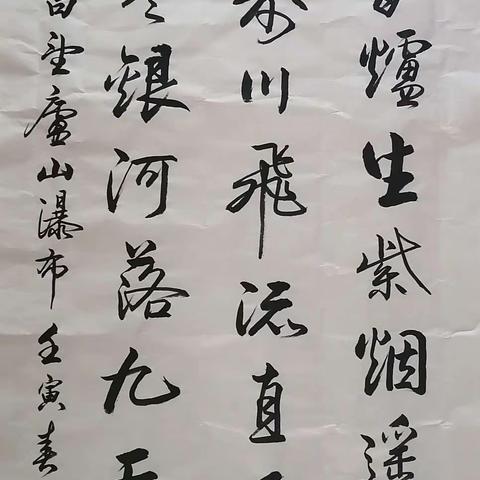 爐生紫烟遥
川飛流直
銀河落九天
白望廬山瀑布壬寅春